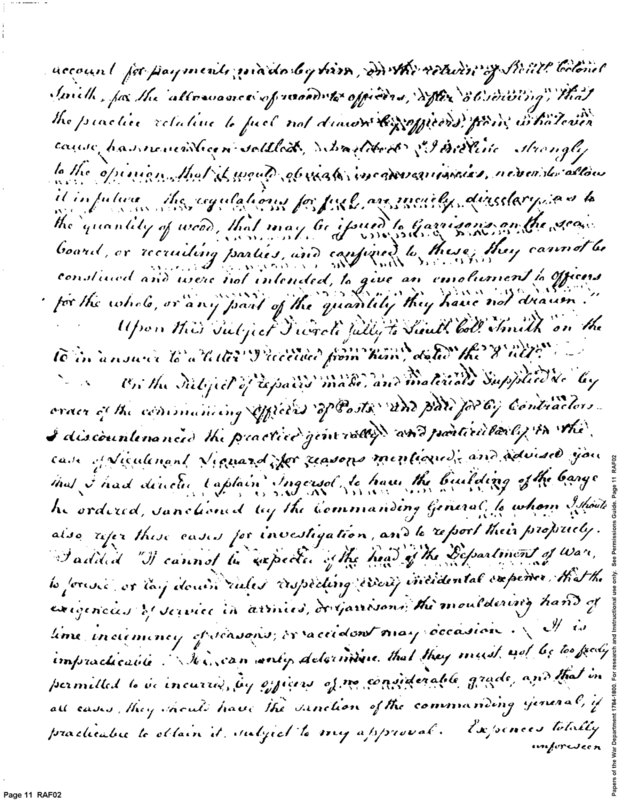 account for payments made by him, on the return of Lieutt Colonel
Smith, for the allowance of wood to officers, after observing, that
the practice relative to fuel not drawn by officers, from whatever
cause, has never been settled, "I incline strongly
to the opinion, that it would obviate inconveniencies, never to allow
it in future, the regulations for fuel, are merely directory, as to
the quantity of wood, that may be issued to Garrisons on the sea
board, or recruiting parties, and confined to these, they cannot be
construed and were not intended, to give an emolument to Officers
for the whole, or any part of the quantity they have not drawn."
Upon this subject I wrote fully to Lieutt Coll Smith on the
in answer to a letter I received from him, dated the 8 ulto
On the subject of repairs made, and materials supplied &c by
order of the commanding Officers of Posts and paid for by Contractors
I discountenanced the practice generally and particularly in the
case of Lieutenant for reasons mentioned, and advised you
that I had directed Captain Ingersol, to have the building of the barge
he ordered, sanctioned by the Commanding General, to whom I should
also refer these cases for investigation, and to report their propriety.
I added "It cannot be expected of the head of the Department of War,
to foresee or lay down rules respecting every incidental expence, that the
exigencies of service in armies, or Garrisons, the mouldering hand of
time, inclemency of seasons, or accident may occasion. It is
impracticable. can only determine, that they must not be too freely
permitted to be incurred, by officers of no considerable grade, and that in
all cases, they should have the sanction of the commanding general, if
practicable to obtain it, subject to my approval. Expences totally
unforeseen
Page 11 RAF02
Papers of the War Department 1784-1800. For research and instructional use only. See Permissions Guide. Page 11 RAF02